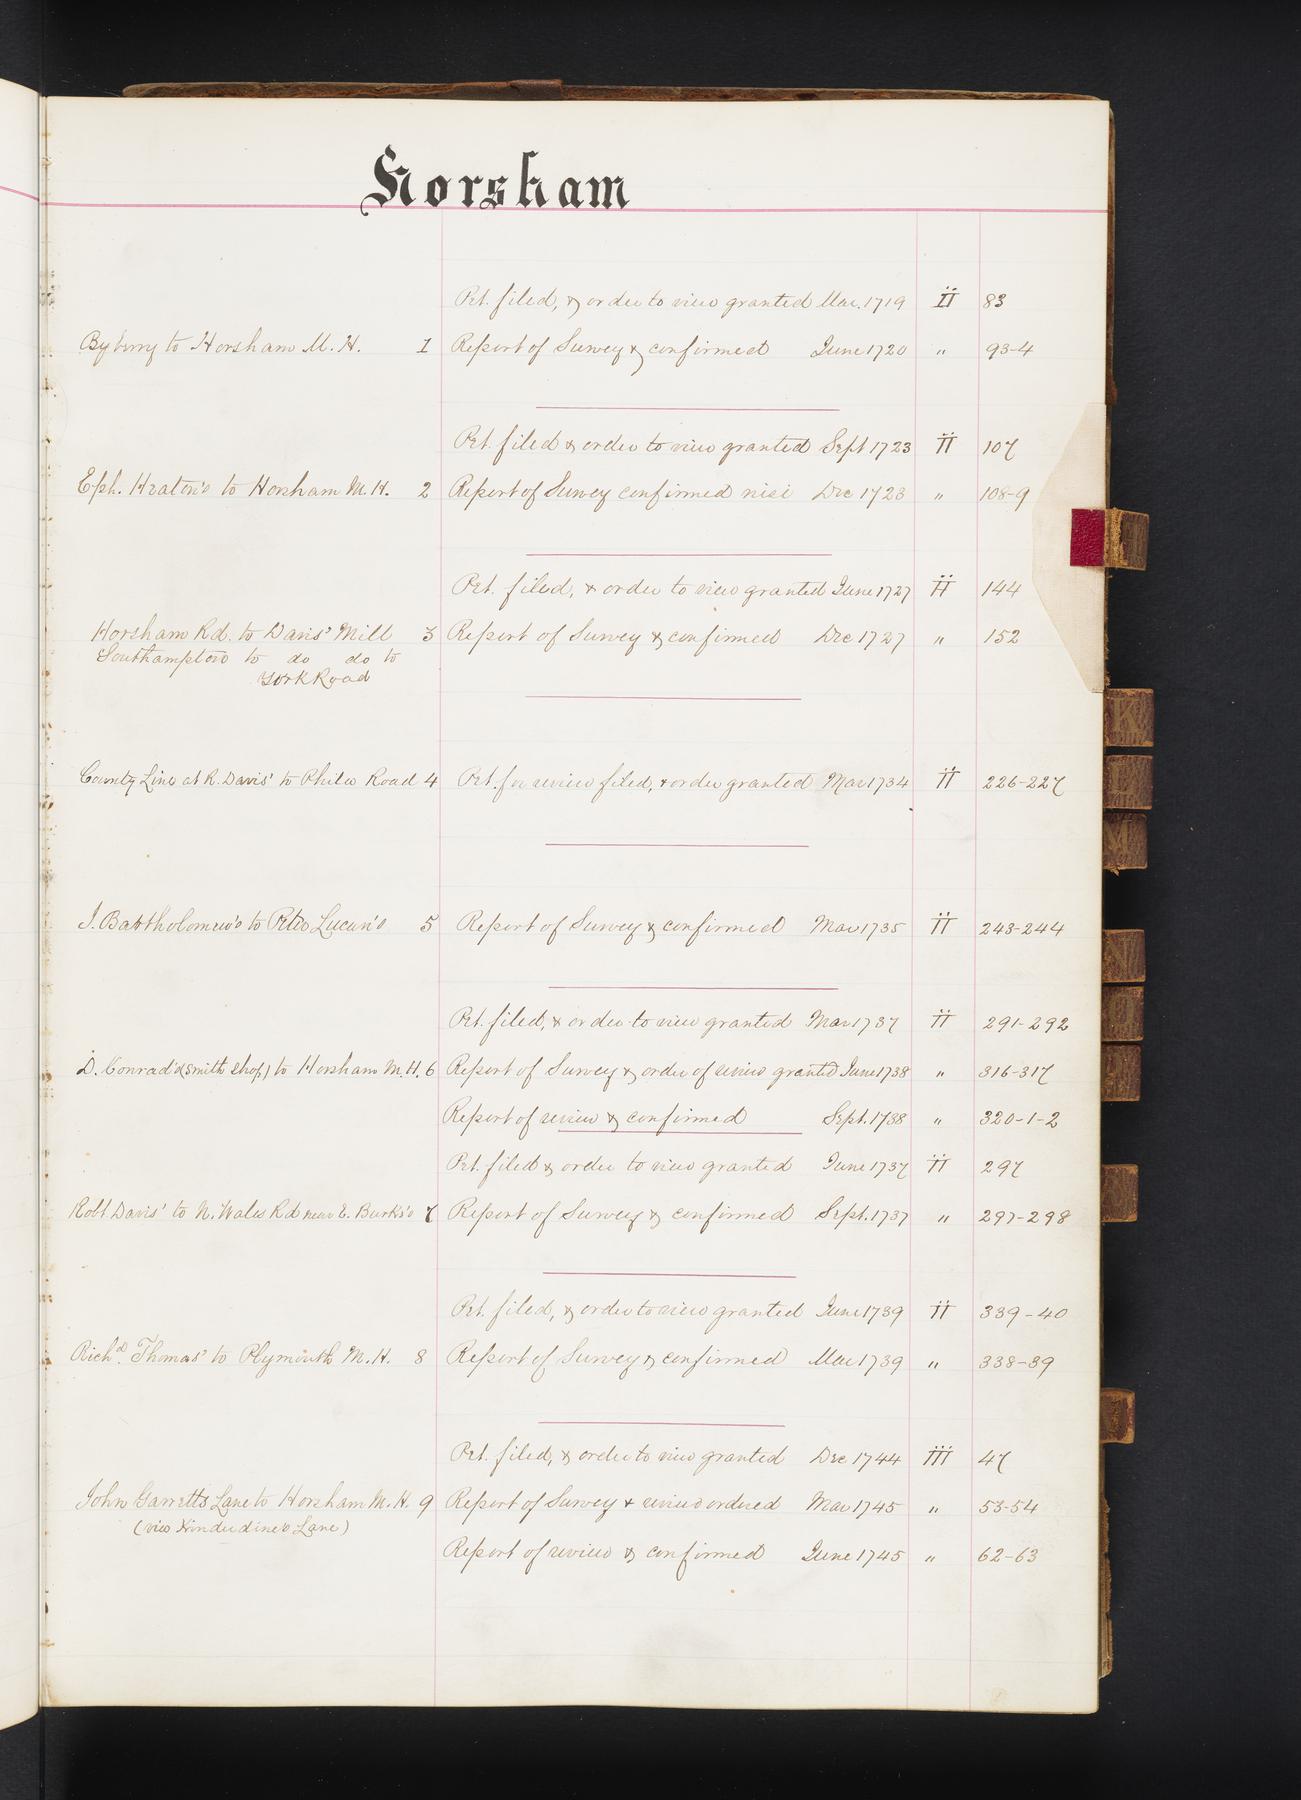 Horsham
Pet. filed, & order to view granted Mar. 1719 II 83
Byberry to Horsham M. H. 1 Report of Survey & confirmed June 1720 " 93-4
Pet. filed & order to view granted Sept 1723 II 107
Eph. Heaton's to Horsham M. H. 2 Report of Survey confirmed nisi Dec 1723 " 108-9
Pet. filed, & order to view granted June 1727 II 144
Horsham Rd. to Davis' Mill 3 Report of Survey & confirmed Dec 1727 " 152
Southampton to do do to
York Road
County Line at R. Davis' to Phila Road 4 Pet. for review filed, & order granted Mar 1734 II 226-227
J. Bartholomew's to Peter Lucan's 5 Report of Survey & confirmed Mar 1735 II 243-244
Pet. filed, & order to view granted Mar 1737 II 291-292
D. Conrad's (smith shop) to Horsham M. H. 6 Report of Survey & order of review granted June 1738 " 316-317
Report of review & confirmed Sept. 1738 " 320-1-2
Pet. filed & order to view granted June 1737 II 297
Robt Davis' to N. Wales Rd near E. Burk's 7 Report of Survey & confirmed Sept. 1737 " 297-298
Pet. filed, & order to view granted June 1739 II 339-40
Richd. Thomas' to Plymouth M. H. 8 Report of Survey & confirmed Mar 1739 " 338-39
Pet. filed, & order to view granted Dec 1744 III 47
John Garretts Lane to Horsham M. H. 9 Report of Survey & review ordered Mar 1745 " 53-54
Lane)
Report of review & confirmed June 1745 " 62-63
K
L
M
N